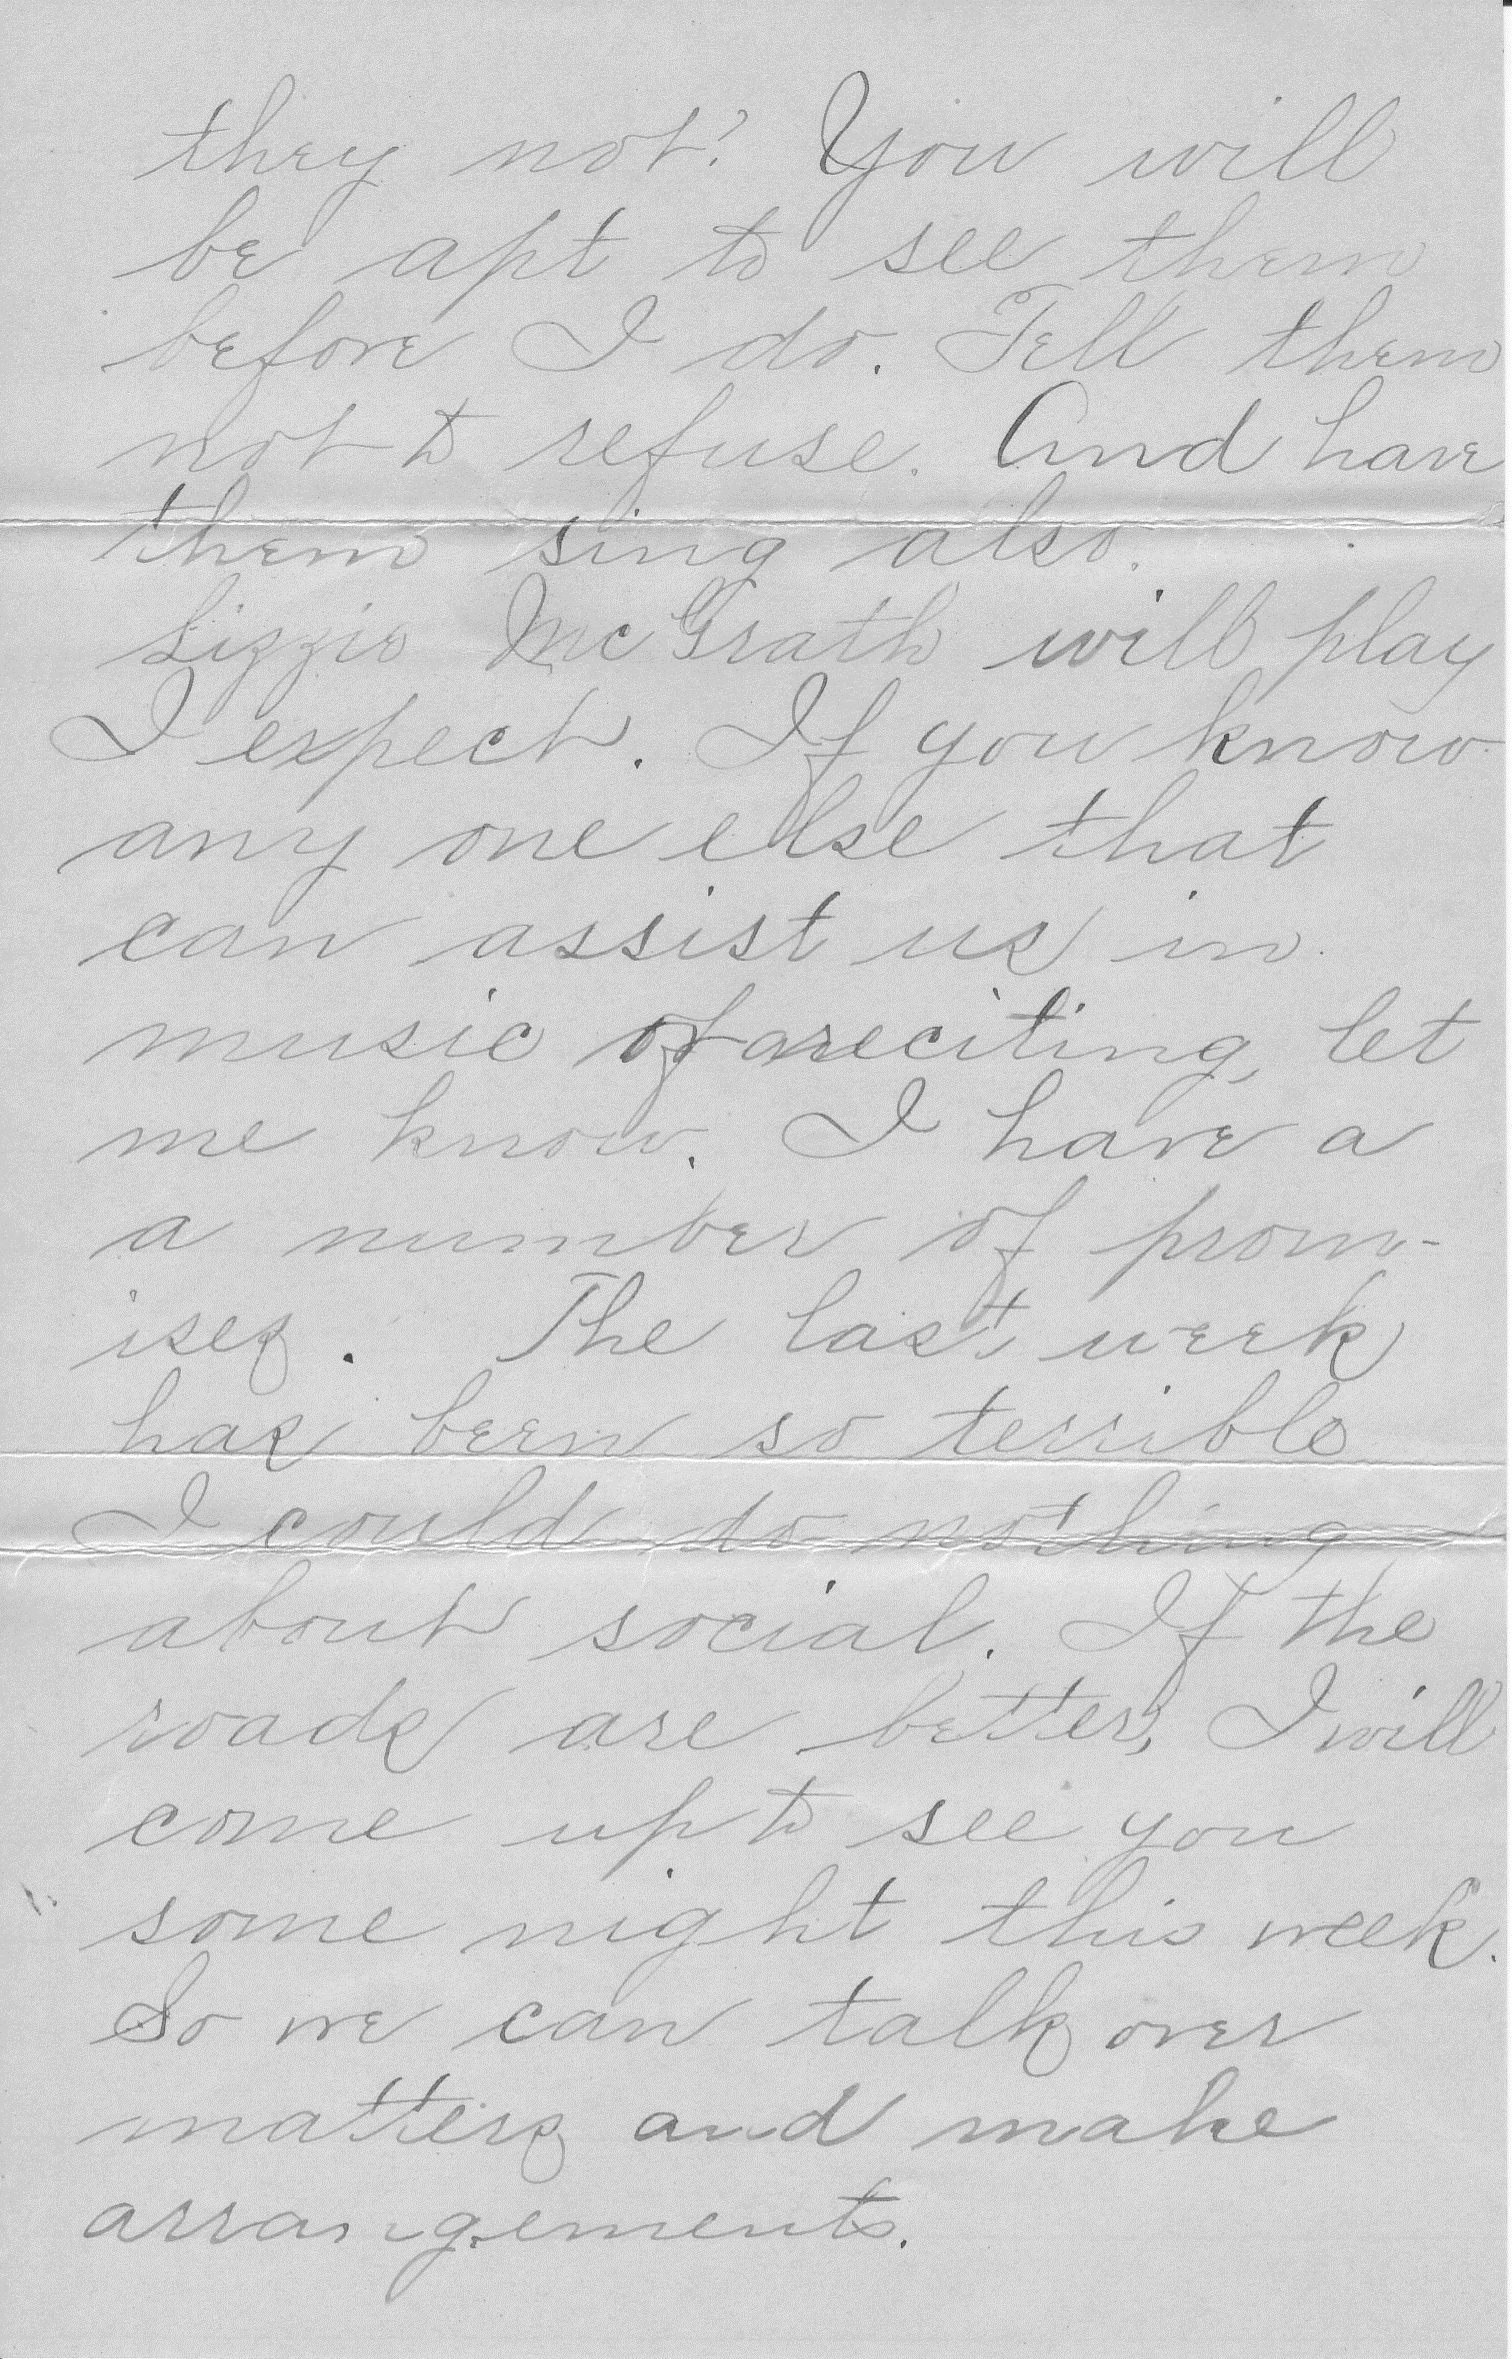 they not? You will
be apt to see them
before I do. Tell them
not to refuse. And have
them sing also.
Lizzie McGrath will play
I expect. If you know
any one else that
can assist us in
music or reciting, let
me know. I have a
a number of prom-
ises. The last week
has been so terrible
I could do nothing
about social. If the
roads are better, I will
come up to see you
some night this week.
So we can talk over
matters and make
arrangements.